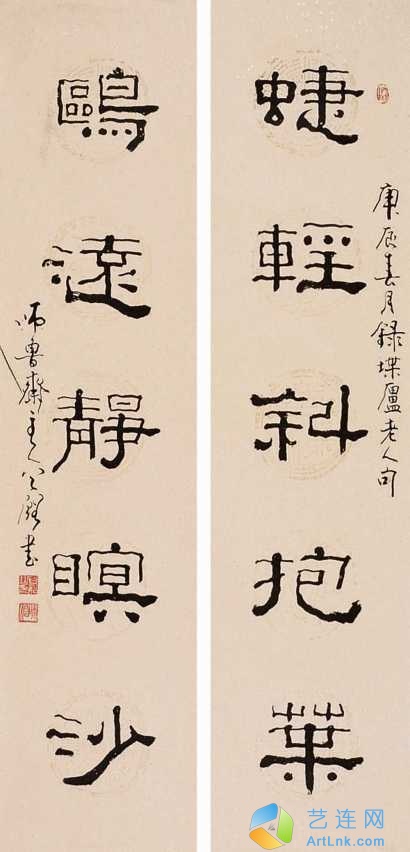 庚辰春月錄堞廬老人句
蜨輕斜抱葉
鷗遠靜瞑沙
師魯齋主人書
艺连网
ArtLnk.COM